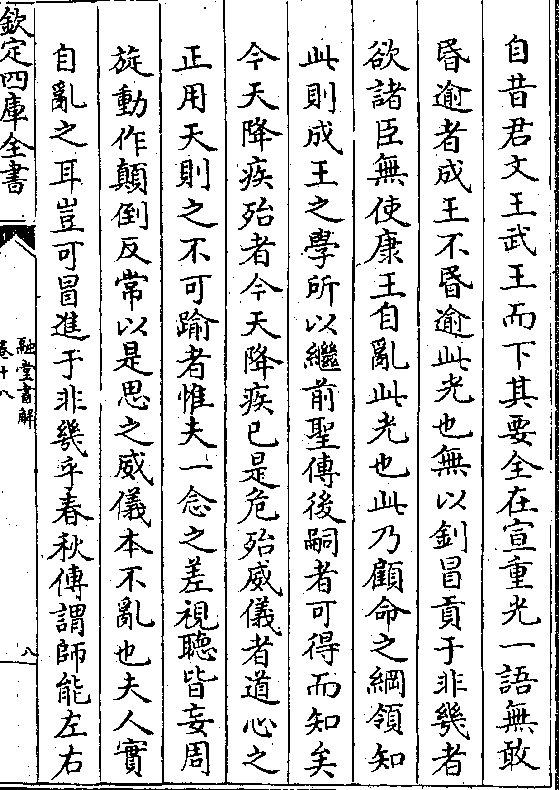 自昔君文王武王而下其要全在宣重光一語無敢
昏逾者成王不昏逾此光也無以釗冒貢于非幾者
欲諸臣無使康王自亂此光也此乃顧命之綱領知
此則成王之學所以繼前聖傳後嗣者可得而知矣
今天降疾殆者今天降疾已是危殆威儀者道心之
正用天則之不可踰者惟夫一念之差視聽皆妄周
旋動作顛倒反常以是思之威儀本不亂也夫人實
自亂之耳豈可冒進于非幾乎春秋傳謂師能左右
欽定四庫全書
融堂書解
卷十八
八